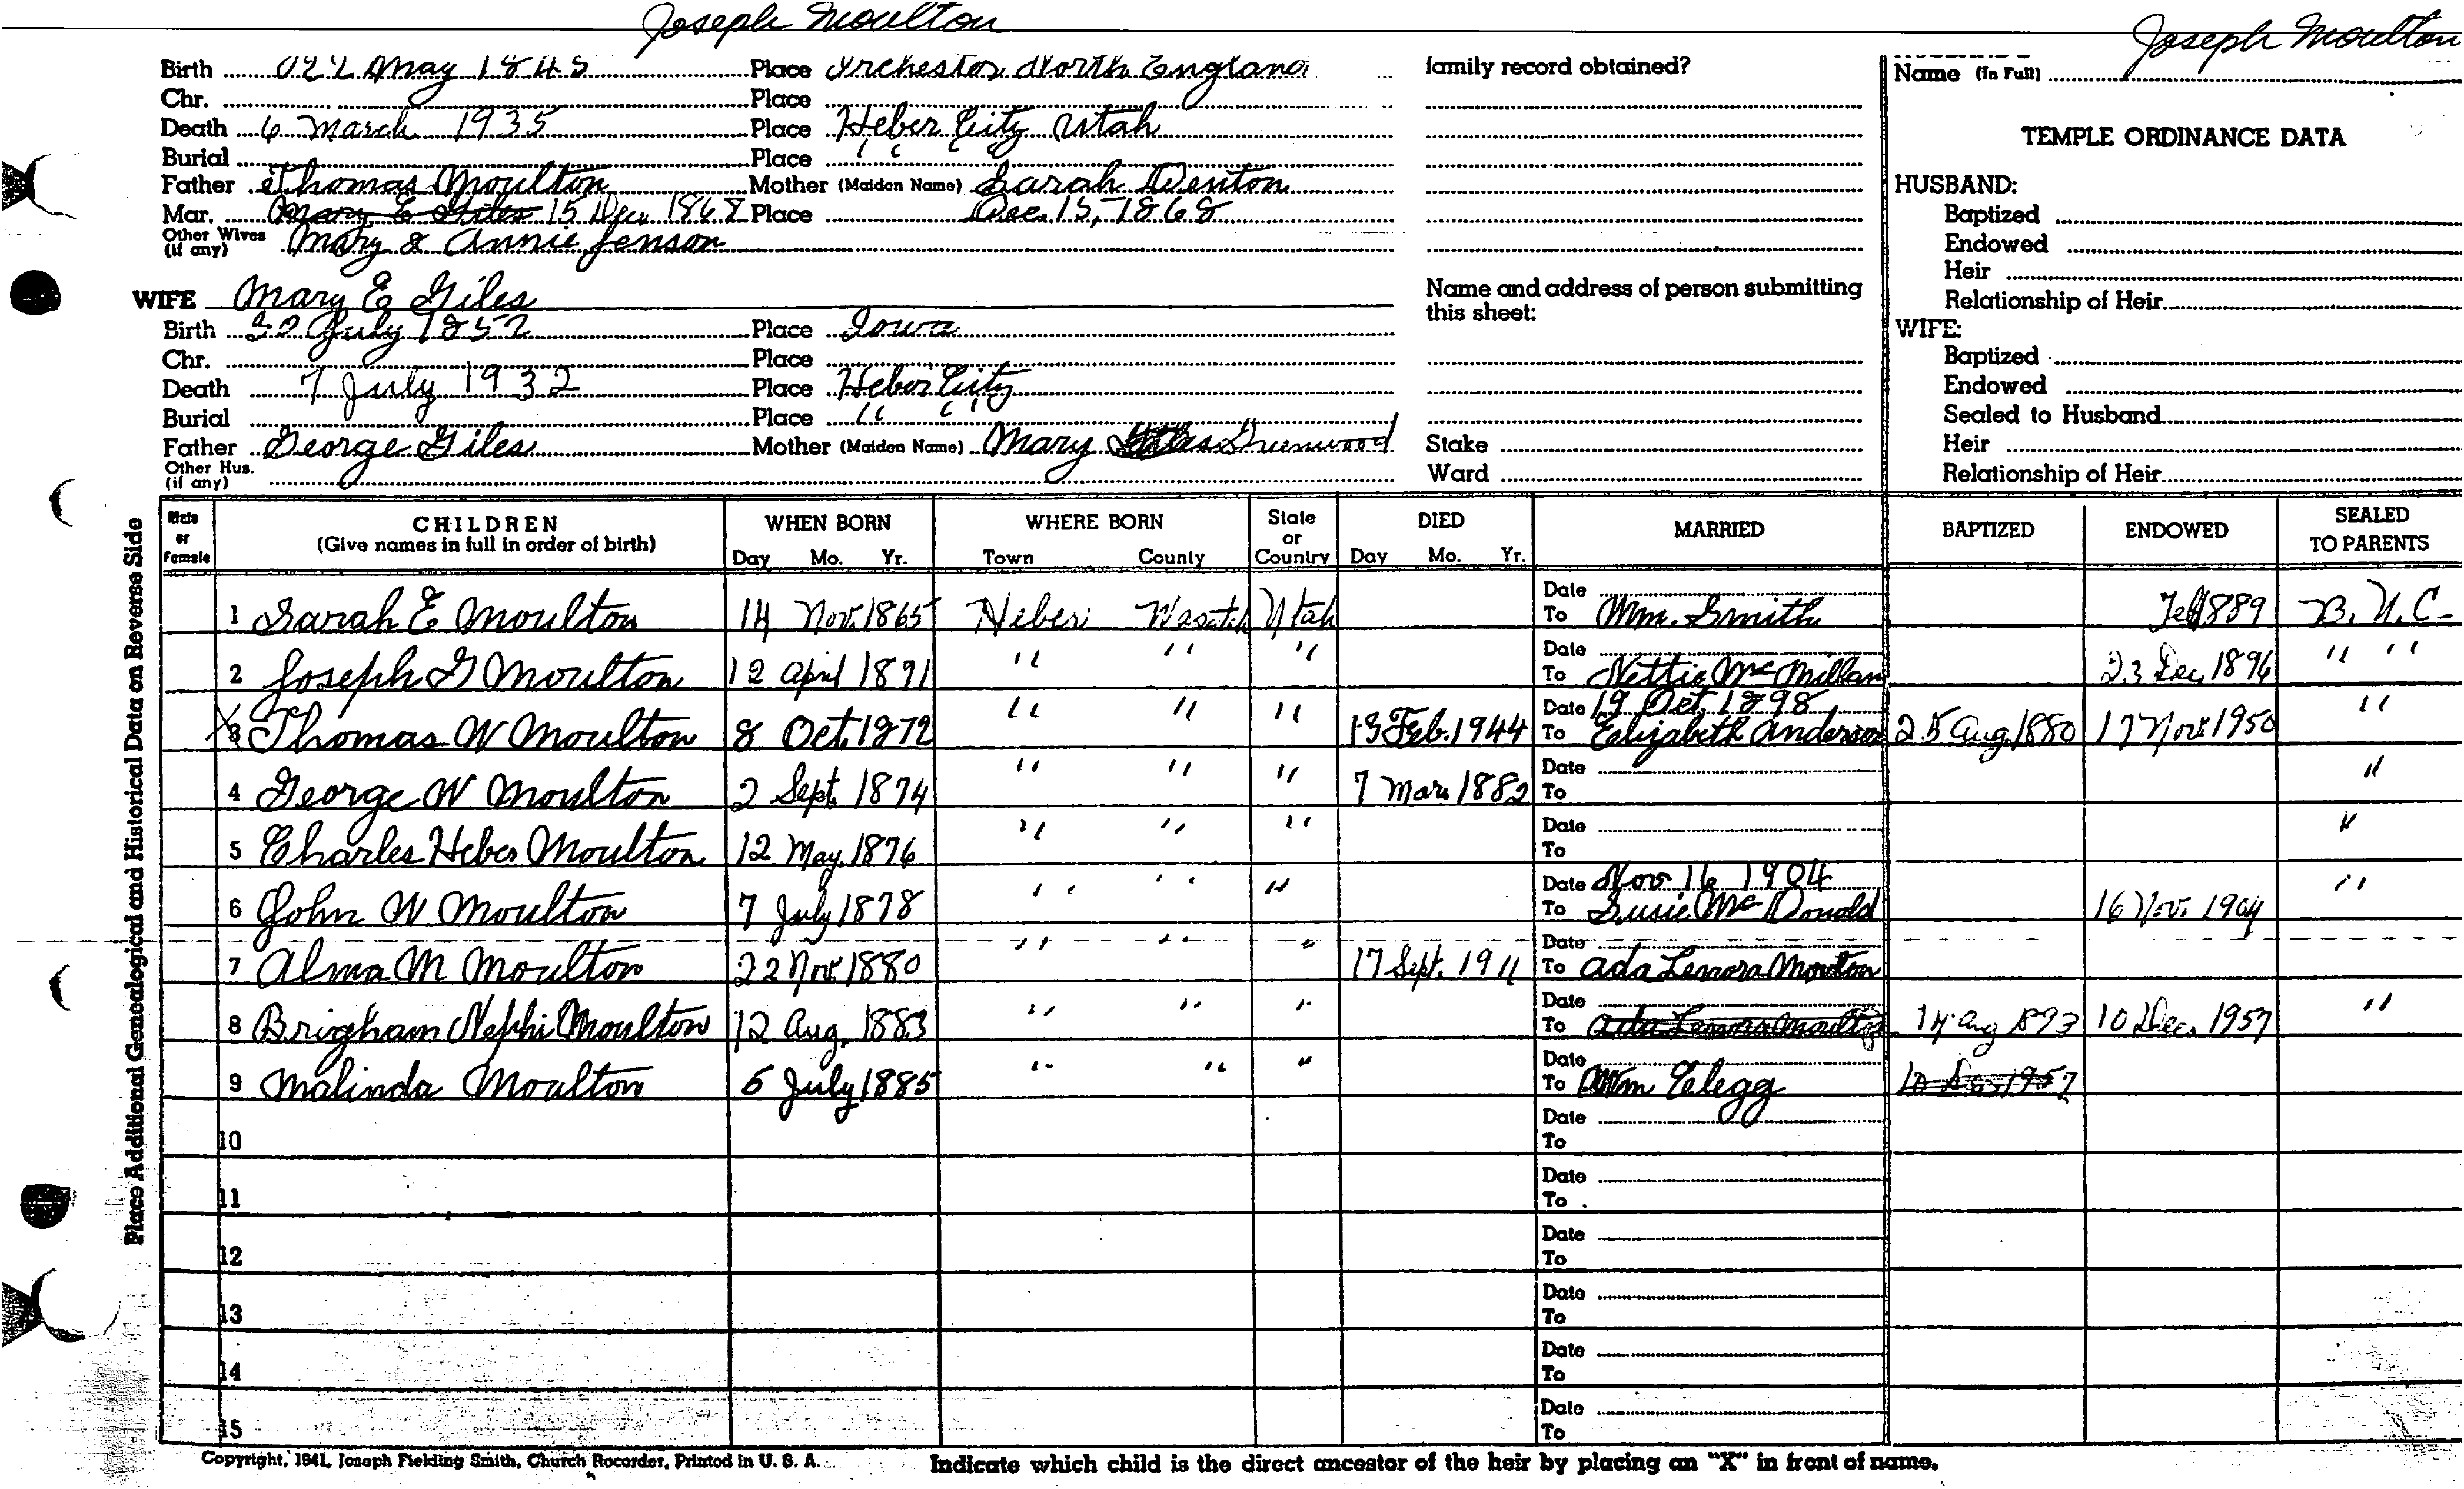 Joseph Moulton
Joseph Moulton
Birth 22 May 1845 Place Irchester North England
Chr. Place
Death 6 March 1935 Place Heber City Utah
Burial Place " "
Father Thomas Moulton Mother (Maiden Name) Sarah Denton
Mar. Mary E Giles 15 Dec 1868 Place Dec. 15, 1868
Other Wives (if any) Mary & Annie Jenson
WIFE Mary E Giles
Birth 30 July 1852 Place Iowa
Chr. Place
Death 7 July 1932 Place Heber City
Burial Place " "
Father George Giles Mother (Maiden Name) Mary Greenwood
Other Hus. (if any)
family record obtained?
Name and address of person submitting
this sheet:
Stake
Ward
Name (in Full)
TEMPLE ORDINANCE DATA
HUSBAND:
Baptized
Endowed
Heir
Relationship of Heir
WIFE:
Baptized
Endowed
Sealed to Husband
Heir
Relationship of Heir
Place Additional Genealogical and Historical Data on Reverse Side
Male or Female CHILDREN (Give names in full in order of birth) WHEN BORN Day Mo. Yr. WHERE BORN Town County State or Country DIED Day Mo. Yr. MARRIED BAPTIZED ENDOWED SEALED TO PARENTS
1 Sarah E Moulton 14 Nov. 1865 Heber Wasatch Utah Date To Wm. Smith 1889 B.I.C.
2 Joseph G Moulton 12 April 1871 " " " Date To Nettie McMillan 23 Dec 1896 " "
X 3 Thomas W Moulton 8 Oct. 1872 " " " 13 Feb. 1944 Date 19 Oct. 1898 To Elizabeth Anderson 25 Aug 1880 17 Nov 1950 "
4 George W Moulton 2 Sept. 1874 " " " 7 Mar. 1882 Date To "
5 Charles Heber Moulton 12 May. 1876 " " " Date To "
6 John W Moulton 7 July 1878 " " " Date Nov 16 1904 To Susie McDonald 16 Nov. 1904 "
7 Alma M Moulton 22 Nov 1880 " " " 17 Sept. 1911 Date To Ada Lenora Moulton
8 Brigham Nephi Moulton 12 Aug. 1883 " " " Date To Ada Lenora Moulton 14 Aug 1893 10 Dec. 1957 "
9 Malinda Moulton 5 July 1885 " " " Date To Wm Clegg 10 Dec 1957
10 Date To
11 Date To
12 Date To
13 Date To
14 Date To
15 Date To
Copyright, 1941, Joseph Fielding Smith, Church Recorder, Printed in U. S. A. Indicate which child is the direct ancestor of the heir by placing an "X" in front of name.